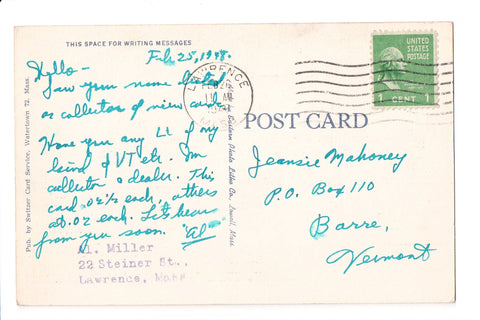 THIS SPACE FOR WRITING MESSAGES
Feb 25, 1948.
Hello -
Saw your name listed
as collector of view cards
Have you any of my
kind of VT etc. I'm
collector & dealer. This
card .02½ each, others
at .02 each. Let's hear
from you soon. "Al"
Al. Miller
22 Steiner St.,
Lawrence, Mass
Pub. by Switzer Card Service, Watertown 72, Mass.
LAWRENCE
FEB 26
AM
MASS
UNITED
STATES
POSTAGE
1 CENT 1
POST CARD
Jeansie Mahoney
P.O. Box 110
Barre,
Vermont